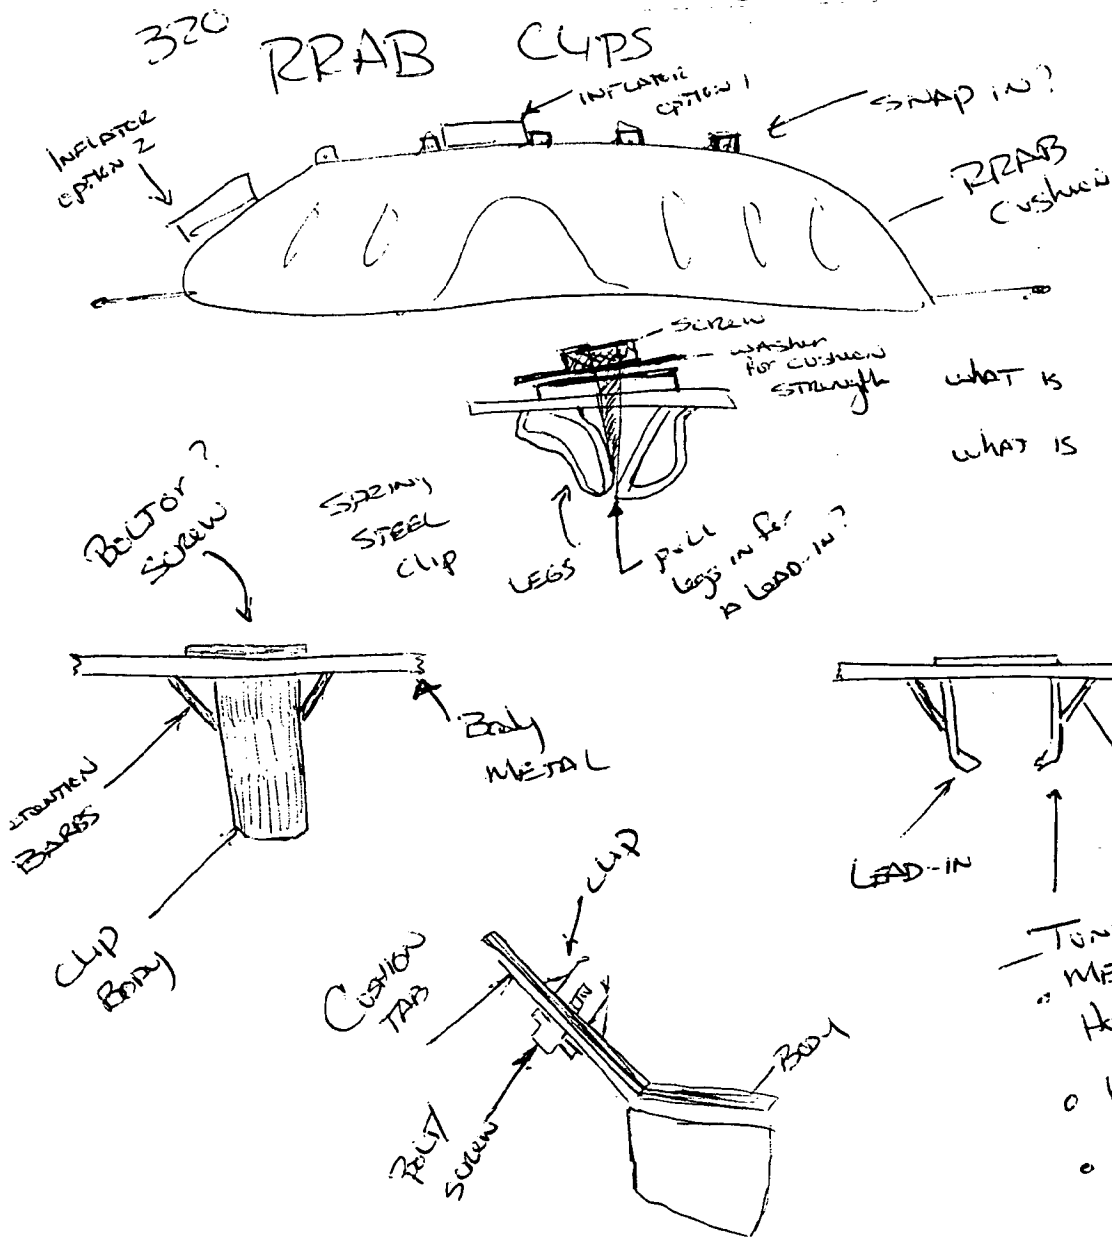 320
RRAB CLIPS
INFLATOR
OPTION 1
SNAP IN?
INFLATOR
OPTION 2
RRAB
CUSHION
SCREW
WASHER
FOR CUSHION
STRENGTH
WHAT IS
WHAT IS
BOLT OR?
SCREW
SPRING
STEEL
CLIP
LEGS
PULL
LEGS IN FOR
A LEAD-IN?
BODY
METAL
BARBS
CLIP
BODY
LEAD-IN
CLIP
CUSHION
TAB
BODY
BOLT/
SCREW